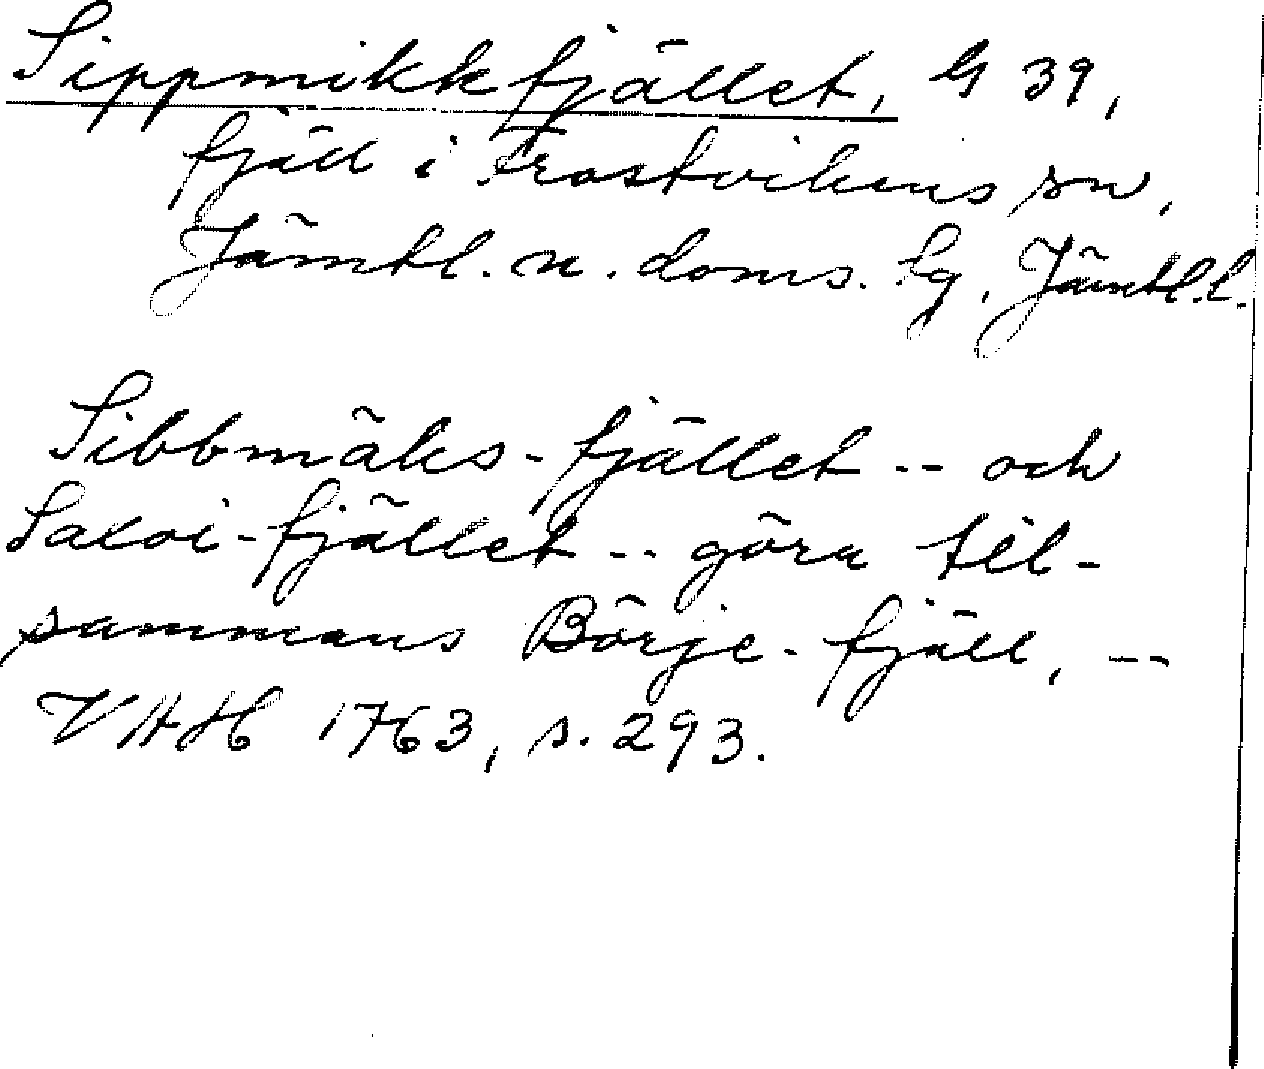 Sippmikkfjället, G 39,
fjäll i Frostvikens sn,
Jämtl. n. doms. tg, Jämtl. l.
Sibbmäks-fjället -- och
Saloi-fjället -- göra til-
sammans Börje-fjäll, --
VAH 1763, s. 293.